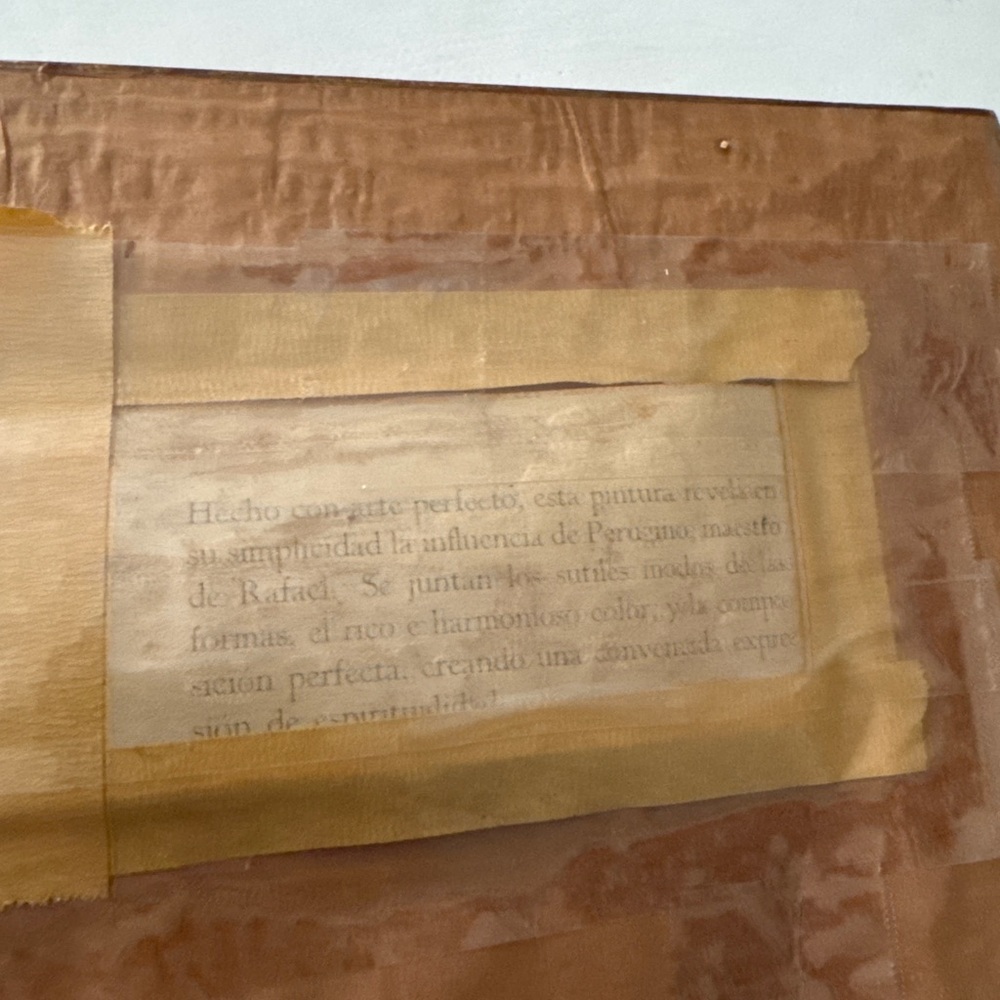 Hecho con arte perfecto, esta pintura revela en
su simplicidad la influencia de Perugino, maestro
de Rafael. Se juntan los sutiles modos de las
formas, el rico e harmonioso color, y la compo-
sición perfecta, creando una convencida expre-
sión de espiritualidad